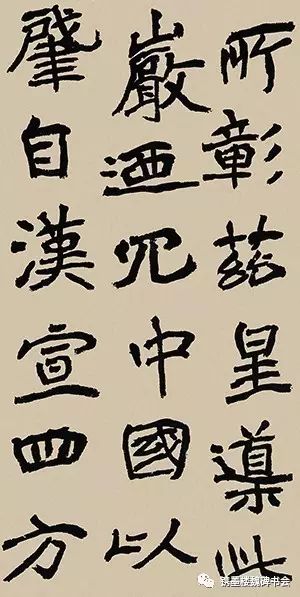 所彰茲星導此
巖迺中國以
肇自漢宣四方
墨楼魏碑书会